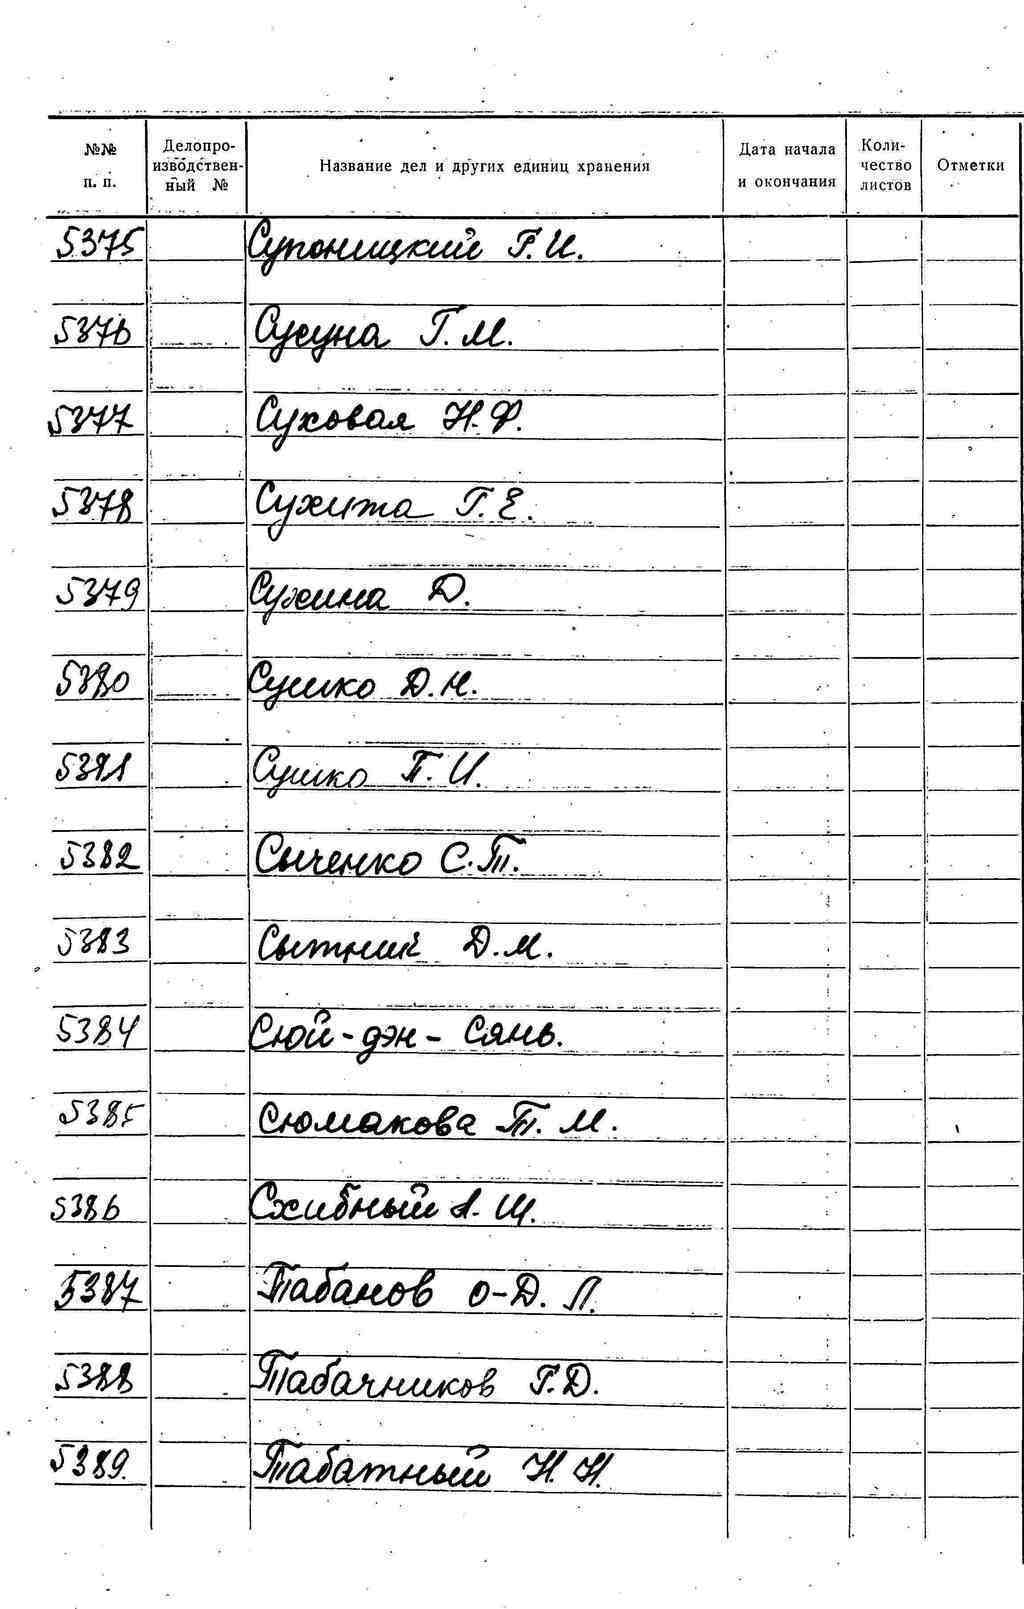 №№ п. п. Делопроизводственный № Название дел и других единиц хранения Дата начала и окончания Количество листов Отметки
5375 Супоницкий Г. И.
5376 Сусуна Г. М.
5377 Суховая Н. Ф.
5378 Сухита Г. Е.
5379 Сухина Д.
5380 Сушко Д. Н.
5381 Сушко П. И.
5382 Сыченко С. Т.
5383 Сытник Д. М.
5384 Сюй-дэн-Сянь.
5385 Сюмакова Т. М.
5386 Схибный А. Ш.
5387 Табанов О-Д. Л.
5388 Табачников Г. Д.
5389. Табатный Н. Н.